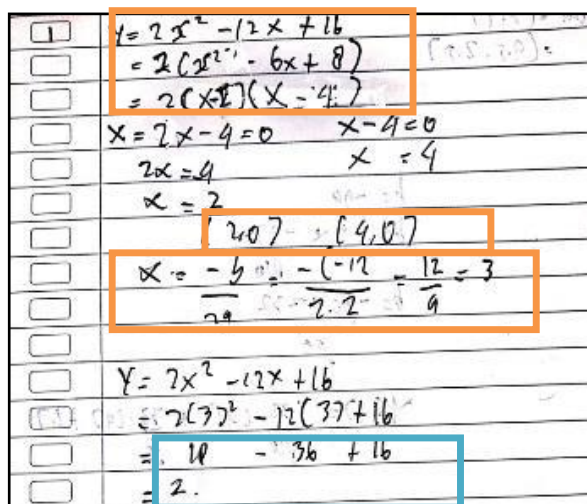 1
y = 2x² - 12x + 16
= 2(x² - 6x + 8)
= 2(x-2)(x-4)
x = 2x - 4 = 0 x - 4 = 0
2x = 4 x = 4
x = 2
(2,0) (4,0)
x = -b/2a = -(-12/2.2 = 12/4 = 3
y = 2x² - 12x + 16
= 2(3)² - 12(3) + 16
= 18 - 36 + 16
= 2.